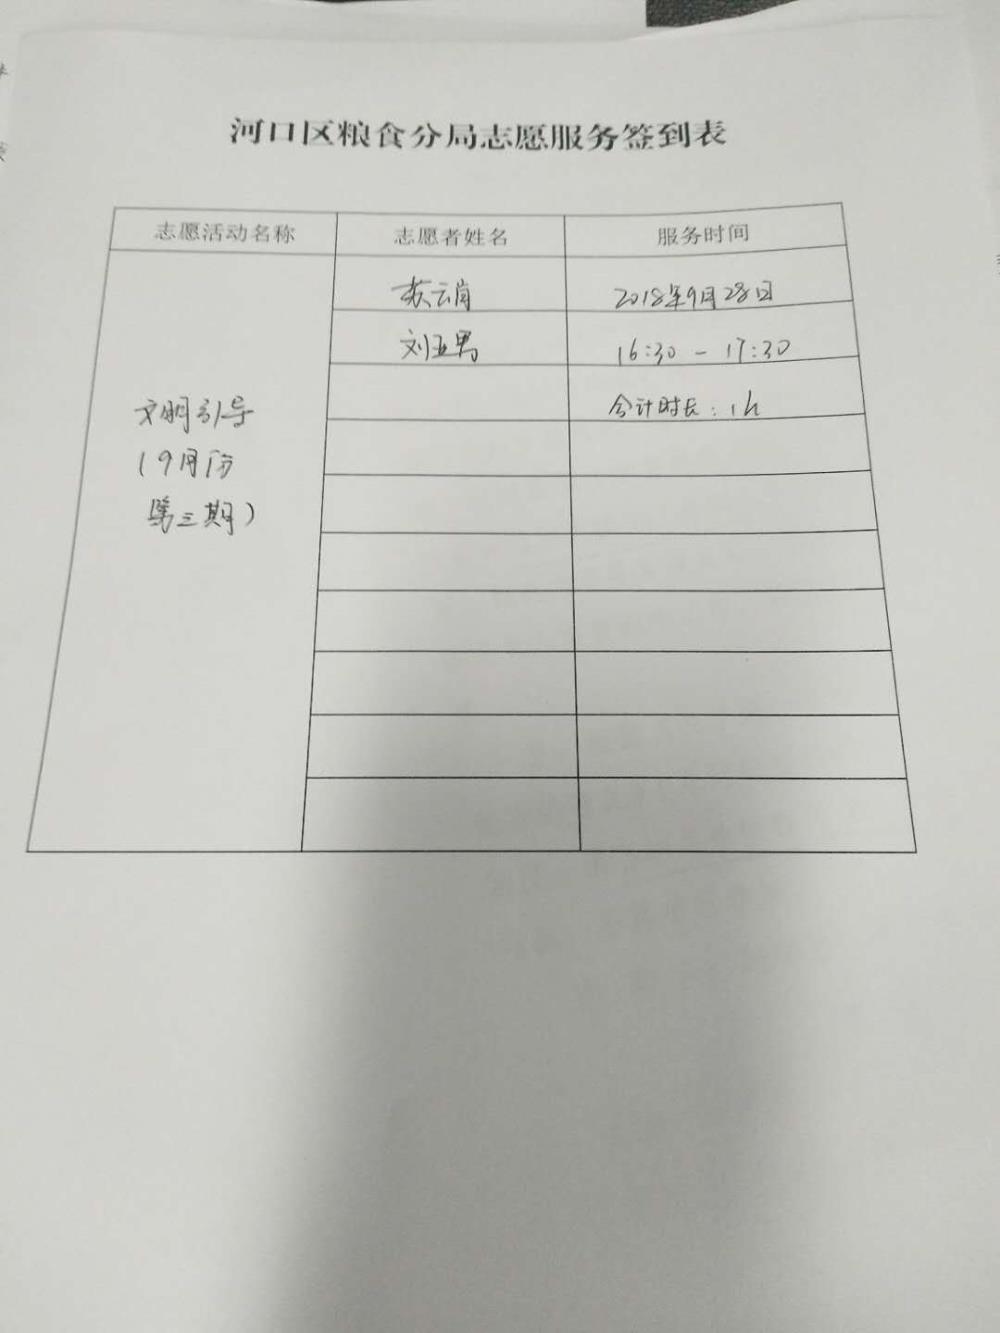 河口区粮食分局志愿服务签到表
志愿活动名称 志愿者姓名 服务时间
苏云肖 2018年9月28日
刘亚男 16:30 - 17:30
合计时长:1h
文明引导
(9月份
第三期)